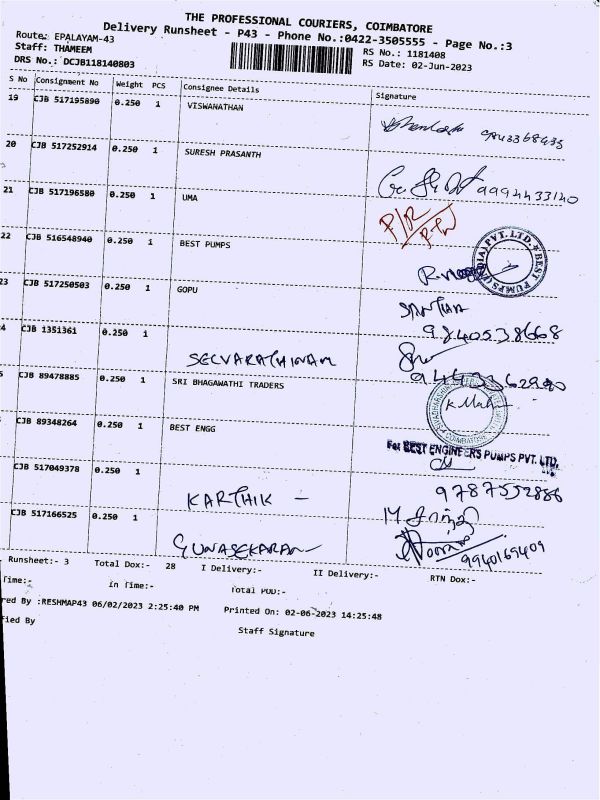 THE PROFESSIONAL COURIERS, COIMBATORE
Delivery Runsheet - P43 - Phone No.:0422-3505555 - Page No.:3
Route: EPALAYAM-43 RS No.: 1181408
Staff: THAMEEM RS Date: 02-Jun-2023
DRS No.: DCJB118140803
S No Consignment No Weight PCS Consignee Details Signature
19 CJB 517195890 0.250 1 VISWANATHAN
20 CJB 517252914 0.250 1 SURESH PRASANTH
9994433140
21 CJB 517196580 0.250 1 UMA
P/R
22 CJB 516548940 0.250 1 BEST PUMPS
BEST PUMPS (INDIA) PVT. LTD.
23 CJB 517250503 0.250 1 GOPU
9840538668
4 CJB 1351361 0.250 1
SELVARATHINAM
5 CJB 89478885 0.250 1 SRI BHAGAWATHI TRADERS
COIMBATORE
CJB 89348264 0.250 1 BEST ENGG
For BEST ENGINEERS PUMPS PVT. LTD.
CJB 517049378 0.250 1
9787552886
KARTHIK -
CJB 517166525 0.250 1
GUNASEKARAN
9940169409
Runsheet:- 3 Total Dox:- 28 I Delivery:- II Delivery:- RTN Dox:-
Time:- in Time:- Total POD:-
red By :RESHMAP43 06/02/2023 2:25:40 PM Printed On: 02-06-2023 14:25:48
fied By
Staff Signature